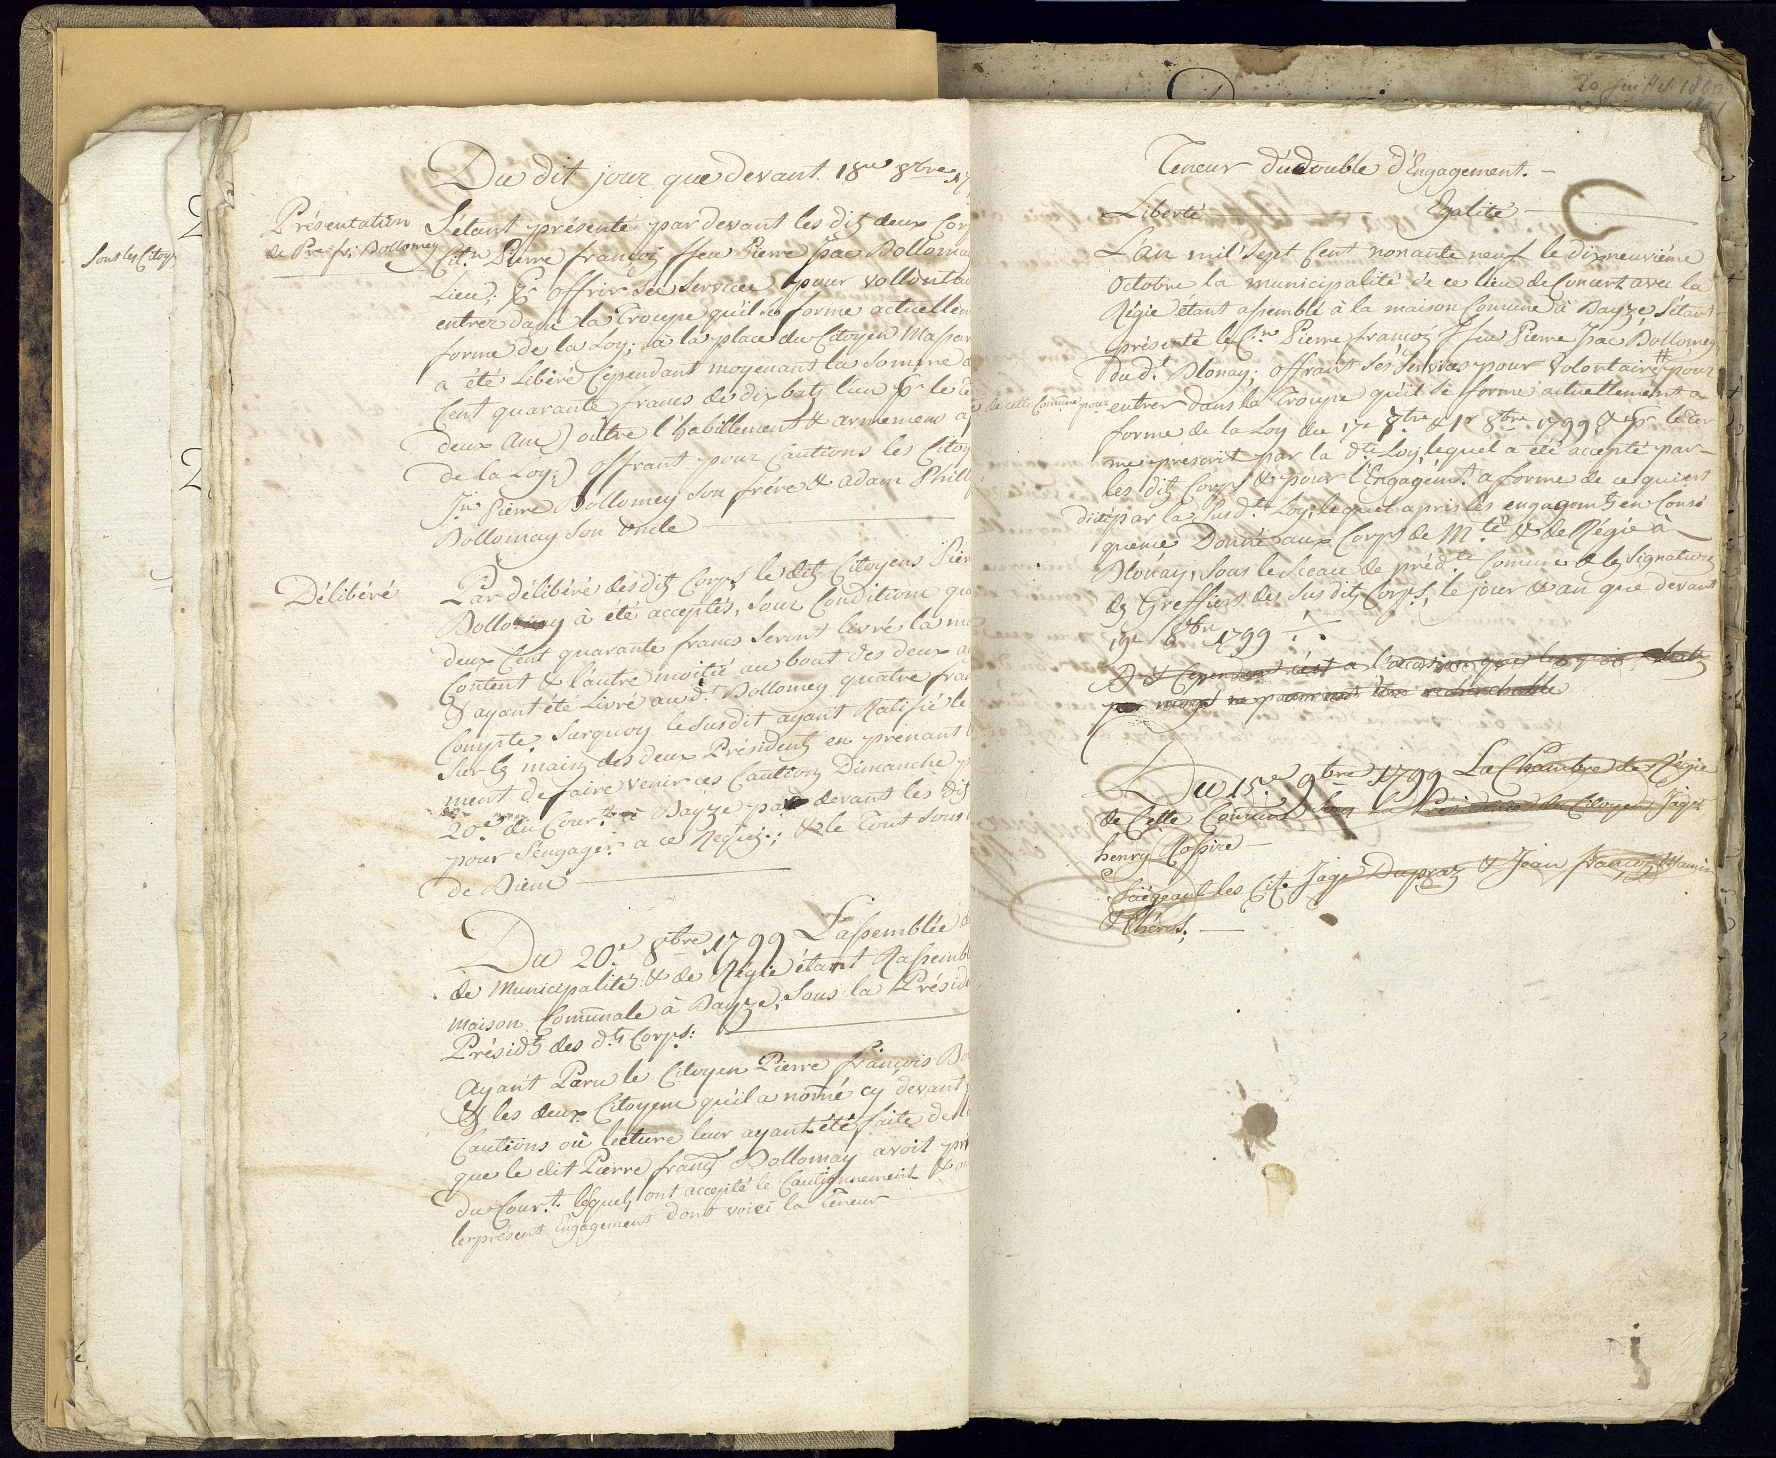 Du dit jour que devant 18me 8bre 17
Présentation
de Pre fs. Dollomey
S'étant présenté pardevant les dits deux Corp
Cit.n Pierre François ffeu Pierre Isac Dolloma
Lieu; Et offrir ses services pour vollonta
entrer dans la Troupe qu'il se forme actuellem
forme de la Loy; a la place du Citoyen Massar
a été Libéré Cependant moyenant la Somme d
Cent quarante francs de dix batz l'un pr le te
deux ans) outre l'habillement & armemens a
de la Loy;) offrant pour Cautions les Citoy
Jn Pierre Dollomey Son frère & adam Phili
Dollomay Son oncle
Délibéré
Par délibéré des dits Corps le dit Citoyens Pier
Dollomay à été acceptés, Sous Conditions que
deux Cent quarante francs Seront livré la mo
Content & l'autre moitié au bout des deux a
& ayant été Livré au d.t Dollomey quatre fra
Compte. Surquoy le Susdit ayant Ratifié le
Sur les mains des deux Présidents en prenant
ment de faire venir ces Cautions Dimanche
20e du Cour.t à Bayze par devant les dis
pour S'engager a ce Requis; & le Tout Sous
de Dieu
Du 20.e 8bre 1799 L'assemblée d
de Municipalité & de Régie étant Rassemb
maison Communale à Bayze, Sous la Présid
Présidts des d.ts Corps:
Ayant Paru le Citoyen Pierre François Do
& les deux Citoyens qu'il a nommé cy devant
Cautions où lecture leur ayant été faite de l
que le dit Pierre franç Dollomay avoit pri
du Cour.t. lesquels ont accepté le Cautionnement &
le présent Engagement dont voici la Teneur
Sous les Citoy
Teneur du double d'Engagement.
Liberté Egalité
L'an mil Sept Cent nonante neuf le dix neuvième
Octobre la municipalité de ce lieu de Concert avec la
Régie étant assemblé à la maison Comune à Bayze, S'étant
présenté le C.n Pierre françois ffeu Pierre Isac Dollomey
Du d.t Blonay; offrant Ses Services pour volontaire # pour
# de cette Comune pour
entrer dans la Troupe qu'il se forme actuellement a
forme de la Loy du 17e 7bre & 1r 8bre 1799 & pr le ter
me préscrit par la dte Loy, lequel a été accepté par
les dits Corps & pour l'Engagém.t a forme de ce qui est
dicté par la Susd.te Loy, lequel a pris les engagemts en Consé
quence Donné aux Corps de M.té & de Régie à
Blonay, Sous le Sceau de préd.te Comune & les Signatures
des Greffiers des Susdits Corps, le jour & an que devant
19e 8bre 1799
& Cependant
ne pourront être recherchable
Du 15.e 9bre 1799 La Chambre de Régie
de Cette Comune Sous la Présidence du Citoyen Jaqs
henry Rossire
Siégeant les Cits Jaqs Dupraz & Jean françois Mamin
& Chérix;
20 Juillet 1800